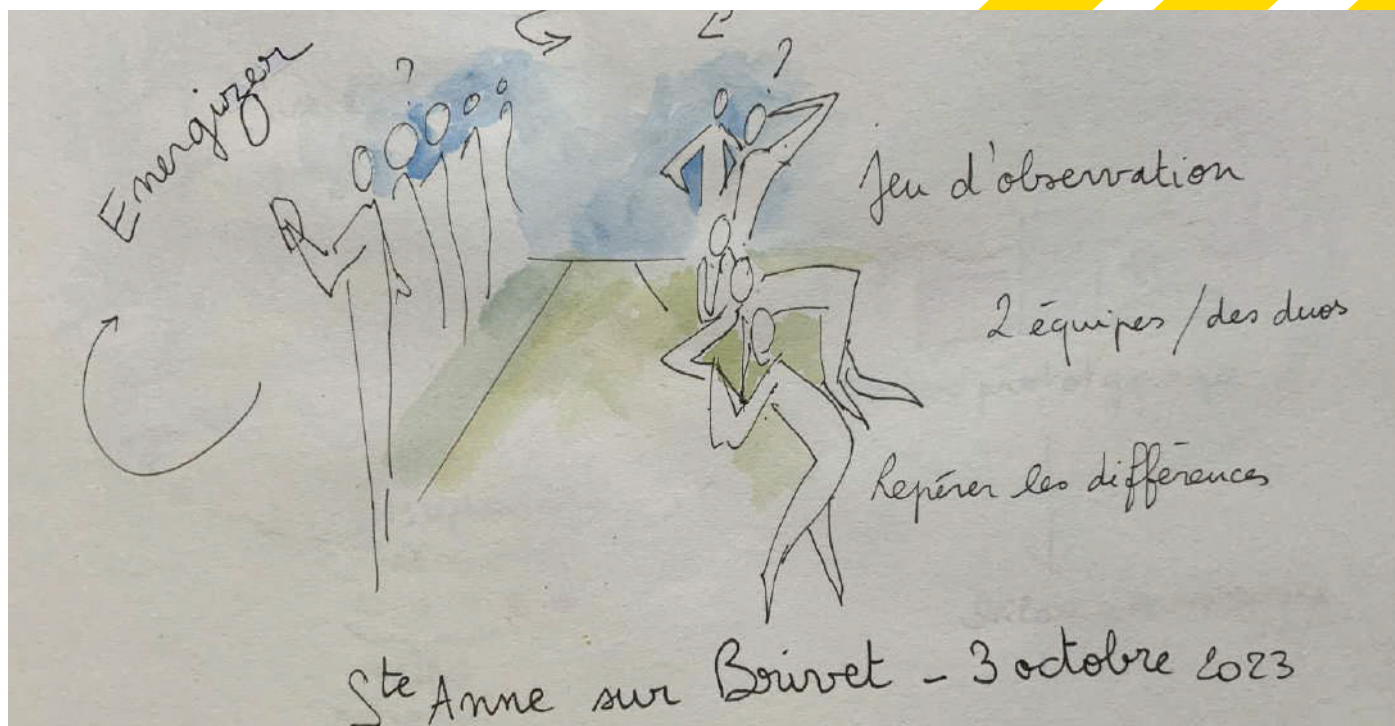 Energizer
?
?
Jeu d'observation
2 équipes / des duos
Repérer les différences
Ste Anne sur Brivet - 3 octobre 2023